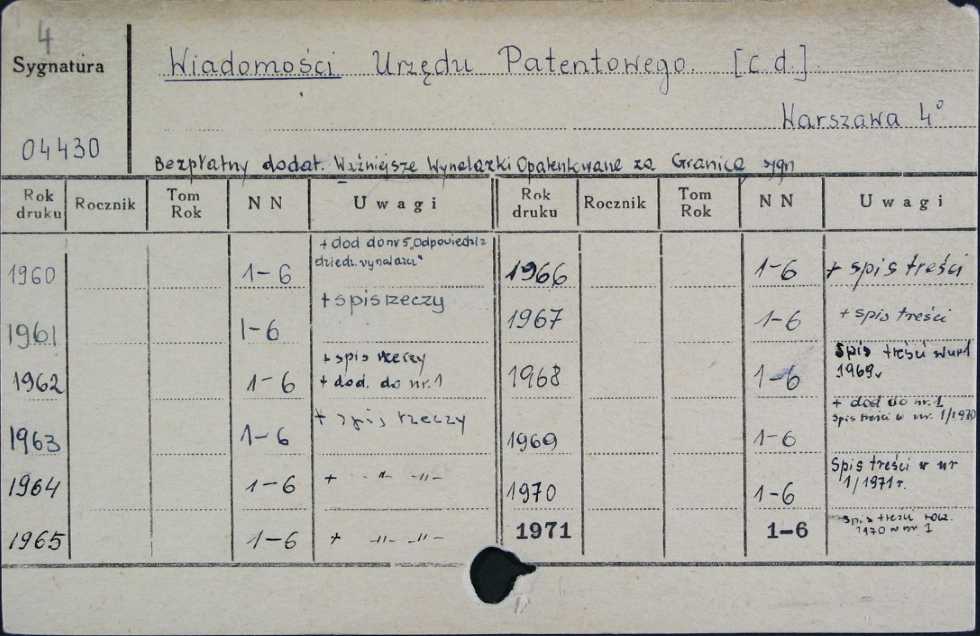 4
Sygnatura
Wiadomości Urzędu Patentowego. [c.d.]
Warszawa 4°
04430
Bezpłatny dodat. Ważniejsze Wynalazki Opatentowane za Granicą sygn
Rok druku Rocznik Tom Rok NN Uwagi Rok druku Rocznik Tom Rok NN Uwagi
1960 1-6 + dod do nr 5 „Odpowiedzi z dziedz. wynalazcz“
1961 1-6 + spis rzeczy
1962 1-6 + spis rzeczy + dod. do nr. 1
1963 1-6 + spis rzeczy
1964 1-6 + -"- -"-
1965 1-6 + -"- -"-
1966 1-6 + spis treści
1967 1-6 + spis treści
1968 1-6 Spis treści w nr 1 1969r
1969 1-6 + dod do nr. 1 spis treści w nr. 1/1970
1970 1-6 Spis treści w nr 1/1971 r.
1971 1-6 Spis treści rocz. 1970 w nr 1